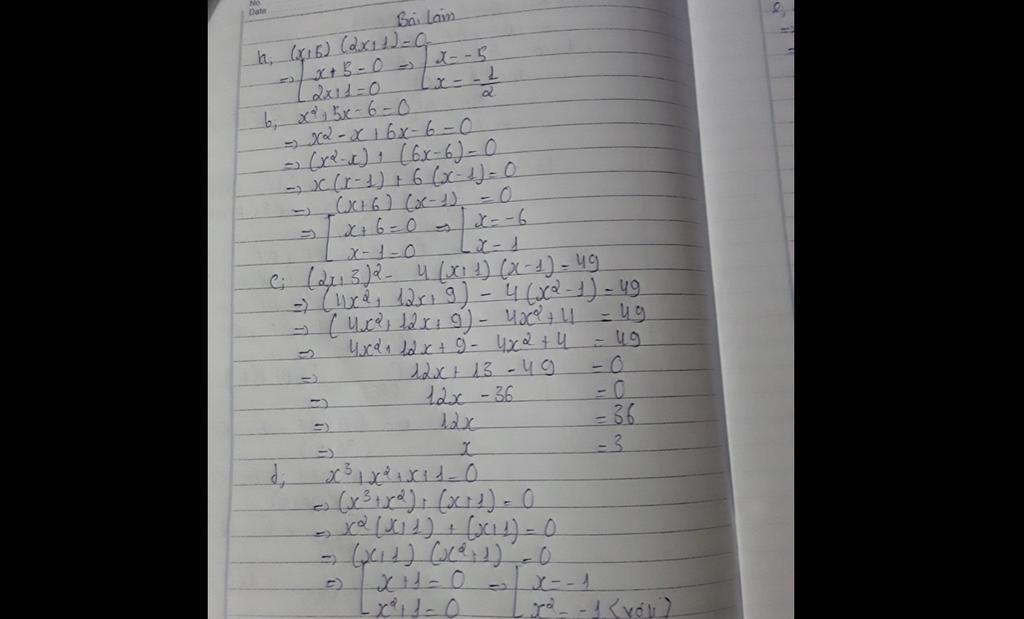 No.
Date
Bài làm
a, (x+5)(2x+1)=0
=> [ x+5=0 => [ x=-5
2x+1=0 x=-1/2
b, x²+5x-6=0
=> x²-x+6x-6=0
=> (x²-x)+(6x-6)=0
=> x(x-1)+6(x-1)=0
=> (x+6)(x-1)=0
=> [ x+6=0 => [ x=-6
x-1=0 x=1
c, (2x+3)²-4(x+1)(x-1)=49
=> (4x²+12x+9)-4(x²-1)=49
=> (4x²+12x+9)-4x²+4=49
=> 4x²+12x+9-4x²+4=49
=> 12x+13-49=0
=> 12x-36=0
=> 12x=36
=> x=3
d, x³+x²+x+1=0
=> (x³+x²)+(x+1)=0
=> x²(x+1)+(x+1)=0
=> (x+1)(x²+1)=0
=> [ x+1=0 => [ x=-1
x²+1=0 x²=-1